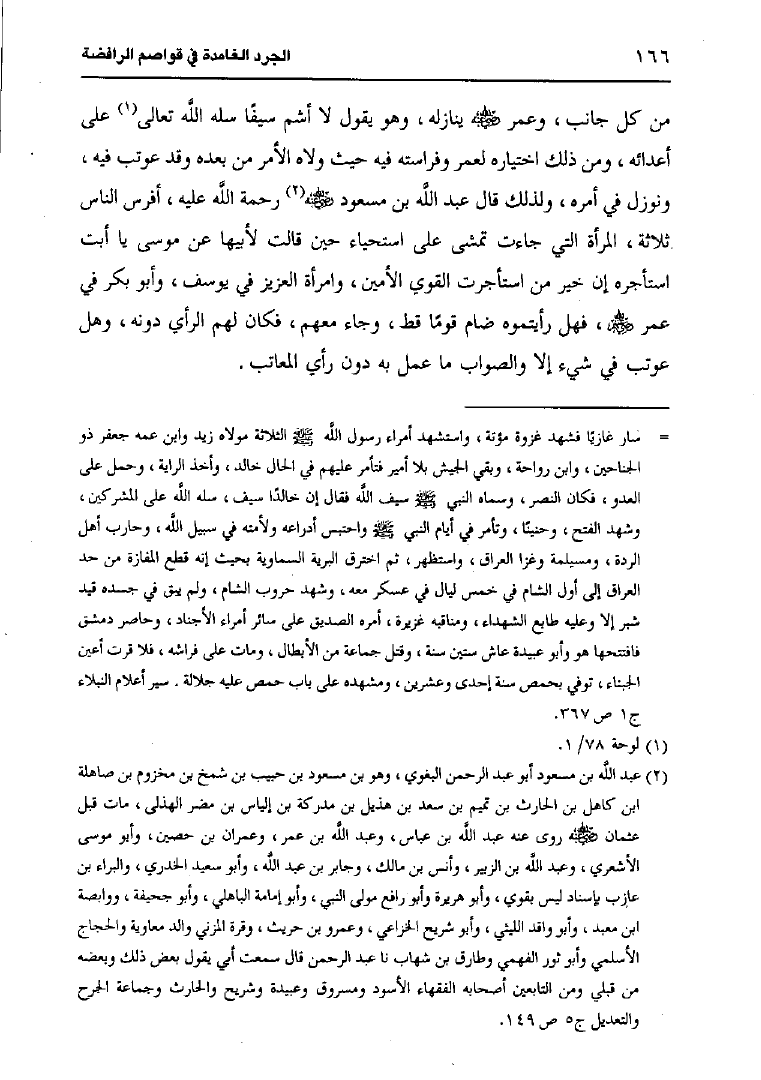 ١٦٦ الجرد الغامدة في قواصم الرافضة
من كل جانب ، وعمر ﷺ ينازله ، وهو يقول لا أشم سيفًا سله اللَّه تعالى(١) على
أعدائه ، ومن ذلك اختياره لعمر وفراسته فيه حيث ولاه الأمر من بعده وقد عوتب فيه ،
ونوزل في أمره ، ولذلك قال عبد اللَّه بن مسعود (٢) رحمة اللَّه عليه ، أفرس الناس
ثلاثة ، المرأة التي جاءت تمشى على استحياء حين قالت لأبيها عن موسى يا أبت
استأجره إن خير من استأجرت القوي الأمين ، وامرأة العزيز في يوسف ، وأبو بكر في
عمر ، فهل رأيتموه ضام قومًا قط ، وجاء معهم ، فكان لهم الرأي دونه ، وهل
عوتب في شيء إلا والصواب ما عمل به دون رأي المعاتب .
= سار غازيًا فشهد غزوة مؤتة ، واستشهد أمراء رسول اللَّه ﷺ الثلاثة مولاه زيد وابن عمه جعفر ذو
الجناحين ، وابن رواحة ، وبقي الجيش بلا أمير فتأمر عليهم في الحال خالد ، وأخذ الراية ، وحمل على
العدو ، فكان النصر ، وسماه النبي ﷺ سيف اللَّه فقال إن خالدًا سيف ، سله اللَّه على المشركين ،
وشهد الفتح ، وحنينًا ، وتأمر في أيام النبي ﷺ واحتبس أدراعه ولأمته في سبيل اللَّه ، وحارب أهل
الردة ، ومسيلمة وغزا العراق ، واستظهر ، ثم اخترق البرية السماوية بحيث إنه قطع المفازة من حد
العراق إلى أول الشام في خمس ليال في عسكر معه ، وشهد حروب الشام ، ولم يبق في جسده قيد
شبر إلا وعليه طابع الشهداء ، ومناقبه غزيرة ، أمره الصديق على سائر أمراء الأجناد ، وحاصر دمشق
فافتتحها هو وأبو عبيدة عاش ستين سنة ، وقتل جماعة من الأبطال ، ومات على فراشه ، فلا قرت أعين
الجبناء ، توفي بحمص سنة إحدى وعشرين ، ومشهده على باب حمص عليه جلالة . سير أعلام النبلاء
ج١ ص ٣٦٧.
(١) لوحة ٧٨/ ١.
(٢) عبد اللَّه بن مسعود أبو عبد الرحمن البغوي ، وهو بن مسعود بن حبيب بن شمخ بن مخزوم بن صاهلة
ابن كاهل بن الحارث بن تميم بن سعد بن هذيل بن مدركة بن إلياس بن مضر الهذلى ، مات قبل
عثمان روى عنه عبد اللَّه بن عباس ، وعبد اللَّه بن عمر ، وعمران بن حصين ، وأبو موسى
الأشعري ، وعبد اللَّه بن الزبير ، وأنس بن مالك ، وجابر بن عبد اللَّه ، وأبو سعيد الخدري ، والبراء بن
عازب بإسناد ليس بقوي ، وأبو هريرة وأبو رافع مولى النبي ، وأبو إمامة الباهلي ، وأبو جحيفة ، ووابصة
ابن معبد ، وأبو واقد الليثي ، وأبو شريح الخزاعي ، وعمرو بن حريث ، وقرة المزني والد معاوية والحجاج
الأسلمي وأبو ثور الفهمي وطارق بن شهاب نا عبد الرحمن قال سمعت أبي يقول بعض ذلك وبعضه
من قبلي ومن التابعين أصحابه الفقهاء الأسود ومسروق وعبيدة وشريح والحارث وجماعة الجرح
والتعديل ج٥ ص ١٤٩.